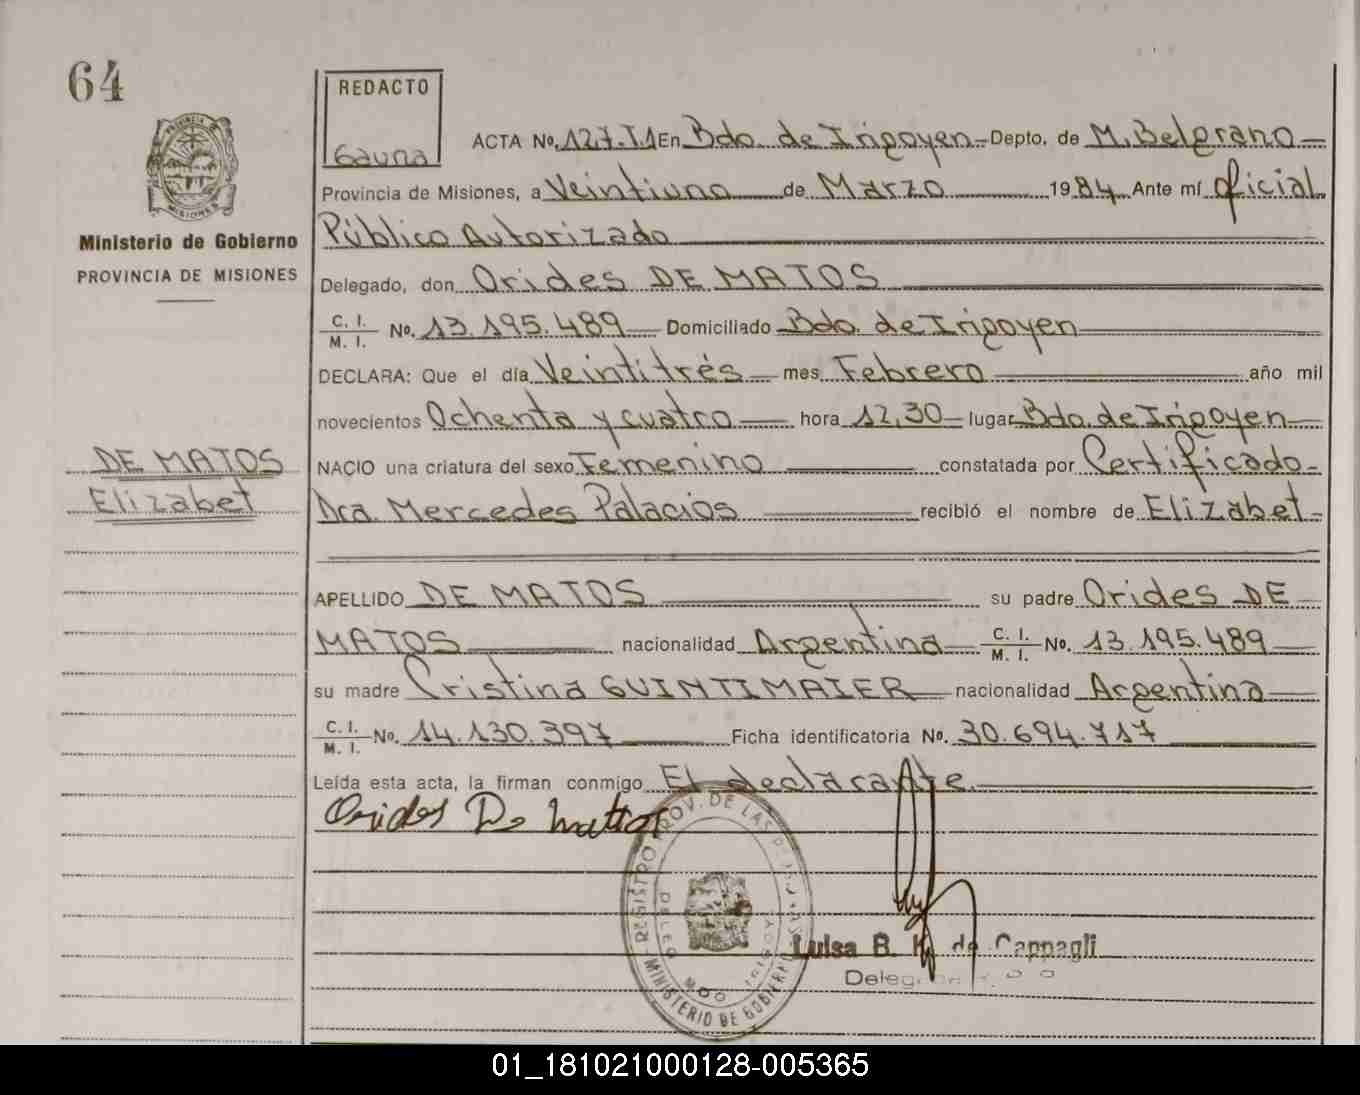 64
REDACTO
Gauna
ACTA No. 127.T.1 En Bdo. de Irigoyen Depto. de M. Belgrano
Provincia de Misiones, a Veintiuno de Marzo 1984 Ante mí Oficial
Público Autorizado
Delegado, don Orides DE MATOS
C. I.
M. I. No. 13.195.489 Domiciliado Bdo. de Irigoyen
DECLARA: Que el día Veintitrés mes Febrero año mil
novecientos Ochenta y cuatro hora 12,30 lugar Bdo. de Irigoyen
NACIO una criatura del sexo Femenino constatada por Certificado
Dra. Mercedes Palacios recibió el nombre de Elizabet
APELLIDO DE MATOS su padre Orides DE
MATOS nacionalidad Argentina C. I. M. I. No. 13.195.489
su madre Cristina GUINTIMAIER nacionalidad Argentina
C. I.
M. I. No. 14.130.397 Ficha identificatoria No. 30.694.717
Leída esta acta, la firman conmigo El declarante.
Orides De Mattos
PROVINCIA DE
MISIONES
Ministerio de Gobierno
PROVINCIA DE MISIONES
DE MATOS
Elizabet
REGISTRO PROV. DE LAS PERSONAS
MINISTERIO DE GOBIERNO
Luisa B. de Cappagli
01_181021000128-005365